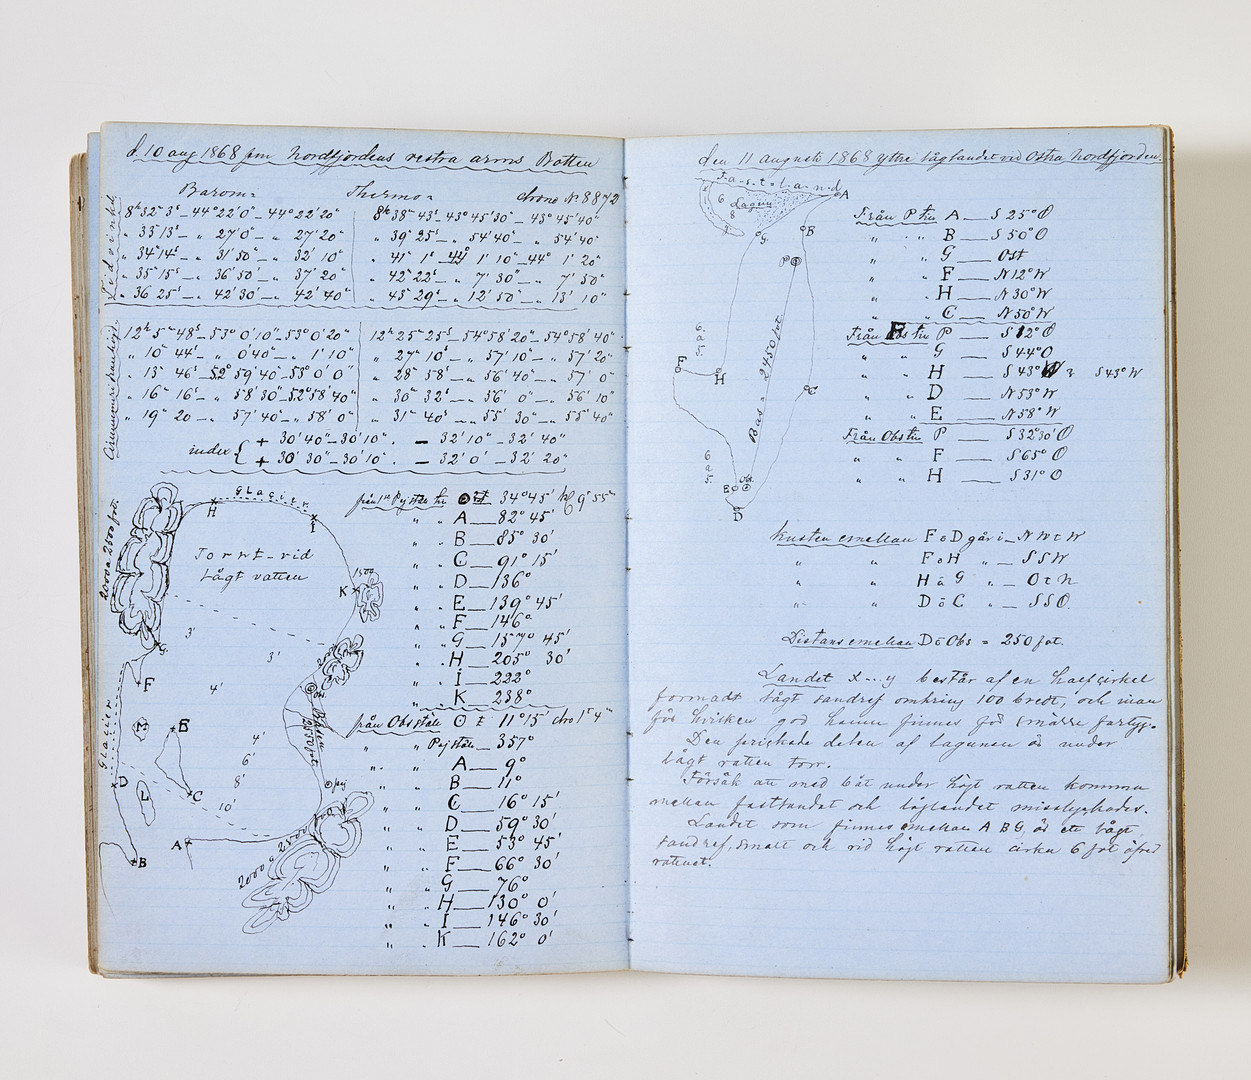 d. 10 aug 1868 fm Nordfjordens vestra arms Botten
Barom= Thermo= chrono № 8872
Tidvinkel
8h 32m 3s – 44° 22' 0" – 44° 22' 20" 8h 38m 43s – 43° 45' 30" – 43° 45' 40"
" 33 13s – " 27' 0" – " 27' 20" " 39m 25s – " 54' 40" – " 54' 40"
" 34m 14s – " 31' 50" – " 32' 10" " 41m 1s 44° 1' 10" – 44° 1' 20"
" 35m 15s – " 36' 50' – " 37' 20" " 42m 22s – " 7' 30" – " 7' 50"
" 36 25s – " 42' 30" – " 42' 40" " 43m 29s – " 12' 50" – " 13' 10"
Circummeridianhöjd.
12h 5m 48s – 53° 0' 10" – 53° 0' 20" 12h 25m 25s – 54° 58' 20" – 54° 58' 40"
" 10m 44s – " 0' 40" – " 1' 10" " 27m 10s – " 57' 10" – " 57' 20"
" 13m 46 – 52° 59' 40" – 53° 0' 0" " 28m 58s – " 56' 40" – " 57' 0"
" 16m 16s – " 58' 30" – 52° 58' 40" " 30m 32s – " 36' 0" – " 56' 10"
" 19m 20 – " 57' 40" – " 58' 0" " 31m 40s – " 55' 30" – " 55' 40"
index { + 30' 40" – 30' 10" . – 32' 10" – 32' 40"
+ 30' 30" – 30' 10" . – 32' 0' – 32' 20"
Glacier
H
I
Torrt vid
lågt vatten
2000 a 2500 fot.
1500
K
3'
3'
G
F
4'
obs
Basen 2550 fot
Glacier
M
E
4'
6'
8'
10'
D
L
C
pej
A
B
2000 a 2500
från 1a Pejställe till ⊙ 34° 45' kl 9 55m
" " A — 82° 45'
" " B — 85° 30'
" " C — 91° 15'
" " D — 136°
" " E — 139° 45'
" " F — 146°
" " G — 157° 45'
" " H — 205° 30'
" " I — 222°
" " K — 238°
från Obställe ⊙ ± 11° 15' chro 1h 4m
" " Pejställe 357°
" " A — 9°
" " B — 11°
" " C — 16° 15'
" " D — 59° 30'
" " E — 53° 45'
" " F — 66° 30'
" " G — 76°
" " H — 130° 0'
" " I — 146° 30'
" " K — 162° 0'
den 11 augusti 1868 yttre låglandet vid Östra Nordfjorden.
Fastland
Lagun
6
8
A
G
B
P
6
a
5.
Bas = 2450 fot
F
H
C
6
a
5.
E
obs
D
Från P till A — S 25° O
" " B — S 50° O
" " G — Ost
" " F — N 12° W
" " H — N 30° W
" " C — N 50° W
Från F till P — S 12° O
" " G — S 44° O
" " H — S 43° W S 43° W
" " D — N 53° W
" " E — N 58° W
Från Obs till P — S 32° 30' O
" " F — S 65° O
" " H — S 31° O
Kusten emellan F o D går i – N W t W
" " F o H " – S S W
" " H o G " – O t N
" " D o C " – S S O.
Distans emellan D o Obs = 250 fot.
Landet x...y består af en halfcirkel
formadt lågt sandref omkring 100 bredt, och inan
för hvilken god hamn finnes för smärre fartyg.
Den prickade delen af lagunen är under
lågt vatten torr.
Försök att med båt under högt vatten komma
mellan fastlandet och låglandet misslyckades.
Landet som finnes emellan A B G, är ett lågt
sandref, smalt och vid högt vatten cirka 6 fot öfver
vattnet.